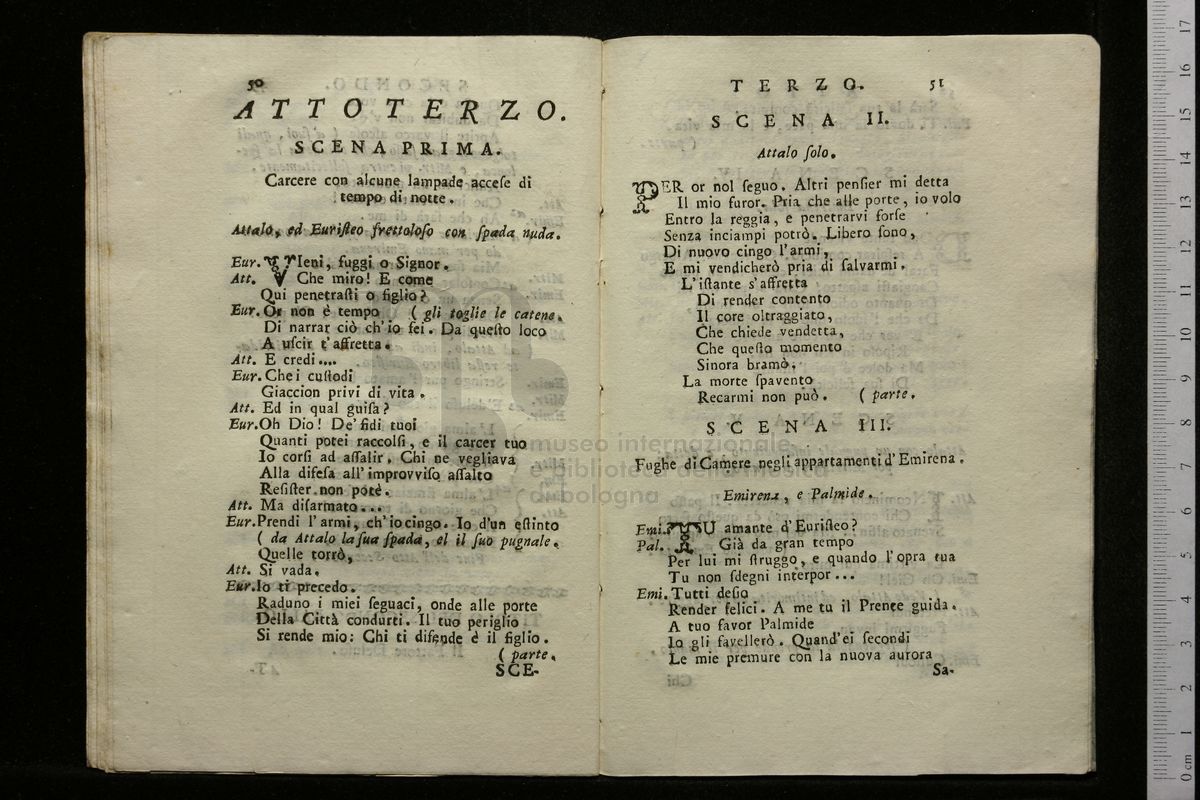 50
ATTO TERZO.
SCENA PRIMA.
Carcere con alcune lampade acceſe di
tempo di notte.
Attalo, ed Euriſteo frettoloſo con ſpada nuda.
Eur. VIeni, fuggi o Signor.
Att. Che miro! E come
Qui penetraſti o figlio?
Eur. Or non è tempo ( gli toglie le catene.
Di narrar ciò ch'io fei. Da queſto loco
A uſcir t'affretta.
Att. E credi....
Eur. Che i cuſtodi
Giaccion privi di vita.
Att. Ed in qual guiſa?
Eur. Oh Dio! De' fidi tuoi
Quanti potei raccolſi, e il carcer tuo
Io corſi ad aſſalir. Chi ne vegliava
Alla difeſa all' improvviſo aſſalto
Reſiſter non potè.
Att. Ma diſarmato...
Eur. Prendi l' armi, ch' io cingo. Io d'un eſtinto
( da Attalo la ſua ſpada, el il ſuo pugnale.
Quelle torrò,
Att. Si vada.
Eur. Io ti precedo.
Raduno i miei ſeguaci, onde alle porte
Della Città condurti. Il tuo periglio
Si rende mio: Chi ti difende è il figlio.
( parte.
SCE-
TERZO. 51
SCENA II.
Attalo ſolo.
PER or nol ſeguo. Altri penſier mi detta
Il mio furor. Pria che alle porte, io volo
Entro la reggia, e penetrarvi forſe
Senza inciampi potrò. Libero ſono,
Di nuovo cingo l'armi,
E mi vendicherò pria di ſalvarmi.
L' iſtante s' affretta
Di render contento
Il core oltraggiato,
Che chiede vendetta,
Che queſto momento
Sinora bramò.
La morte ſpavento
Recarmi non può. ( parte.
SCENA III.
Fughe di Camere negli appartamenti d' Emirena.
Emirena, e Palmide.
Emi. TU amante d' Euriſteo?
Pal. Già da gran tempo
Per lui mi ſtruggo, e quando l' opra tua
Tu non ſdegni interpor...
Emi. Tutti deſio
Render felici. A me tu il Prence guida.
A tuo favor Palmide
Io gli favellerò. Quand' ei ſecondi
Le mie premure con la nuova aurora
Sa-
museo internazionale
e biblioteca della musica
di bologna
0 cm 1 2 3 4 5 6 7 8 9 10 11 12 13 14 15 16 17